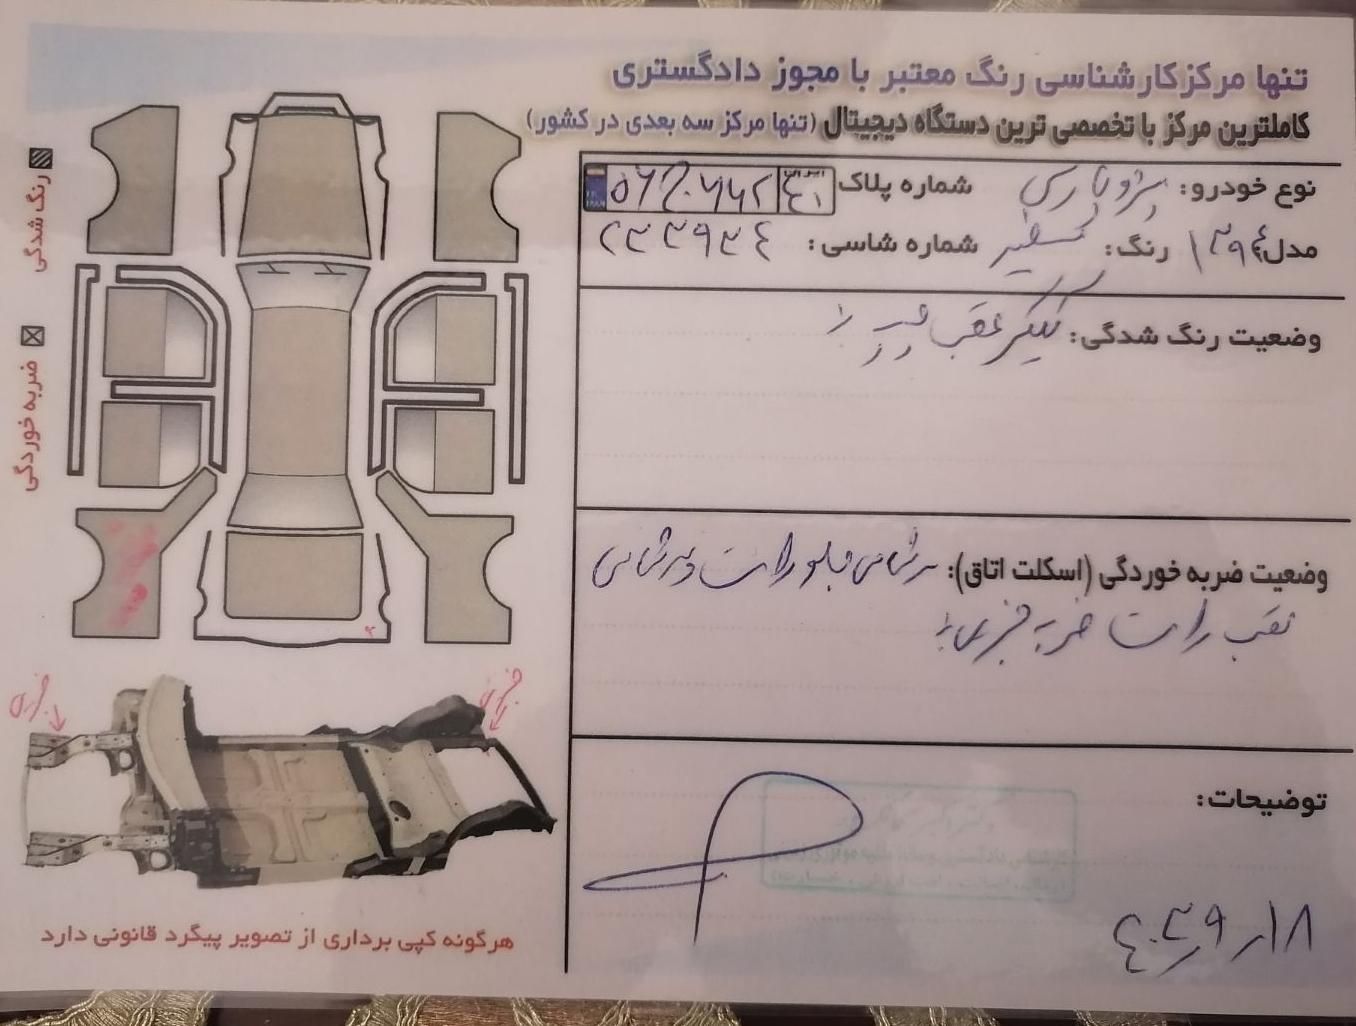 تنها مرکز کارشناسی رنگ معتبر با مجوز دادگستری
کاملترین مرکز با تخصصی ترین دستگاه دیجیتال (تنها مرکز سه بعدی در کشور)
نوع خودرو: پژو پارس شماره پلاک
مدل ۱۳۹۴ رنگ: شماره شاسی: ۲۳۳۹۳۴
وضعیت رنگ شدگی: گلگیر عقب
وضعیت ضربه خوردگی (اسکلت اتاق): جلو راست
عقب راست ضربه جزیی
توضیحات:
رنگ شدگی
ضربه خوردگی
جزیی
جزیی
هرگونه کپی برداری از تصویر پیگرد قانونی دارد